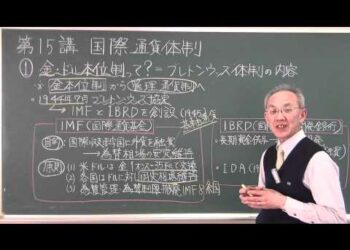 第15講 国際通貨体制
① 金・ドル本位制って?=ブレトンウッズ体制の内容
金本位制から管理通貨制へ
1944年7月ブレトンウッズ協定
→IMFとIBRDを創設
IMF(国際通貨基金)
目的 国際収支赤字国に外貨を融資
→為替相場の安定維持
原則 (1) 米ドルは金1オンス=35ドルで交換
(2) 各国はドルに対し固定相場維持
(3) 為替管理・為替制限撤廃 IMF8条国
IBRD(国
長期資金供与
IDA(